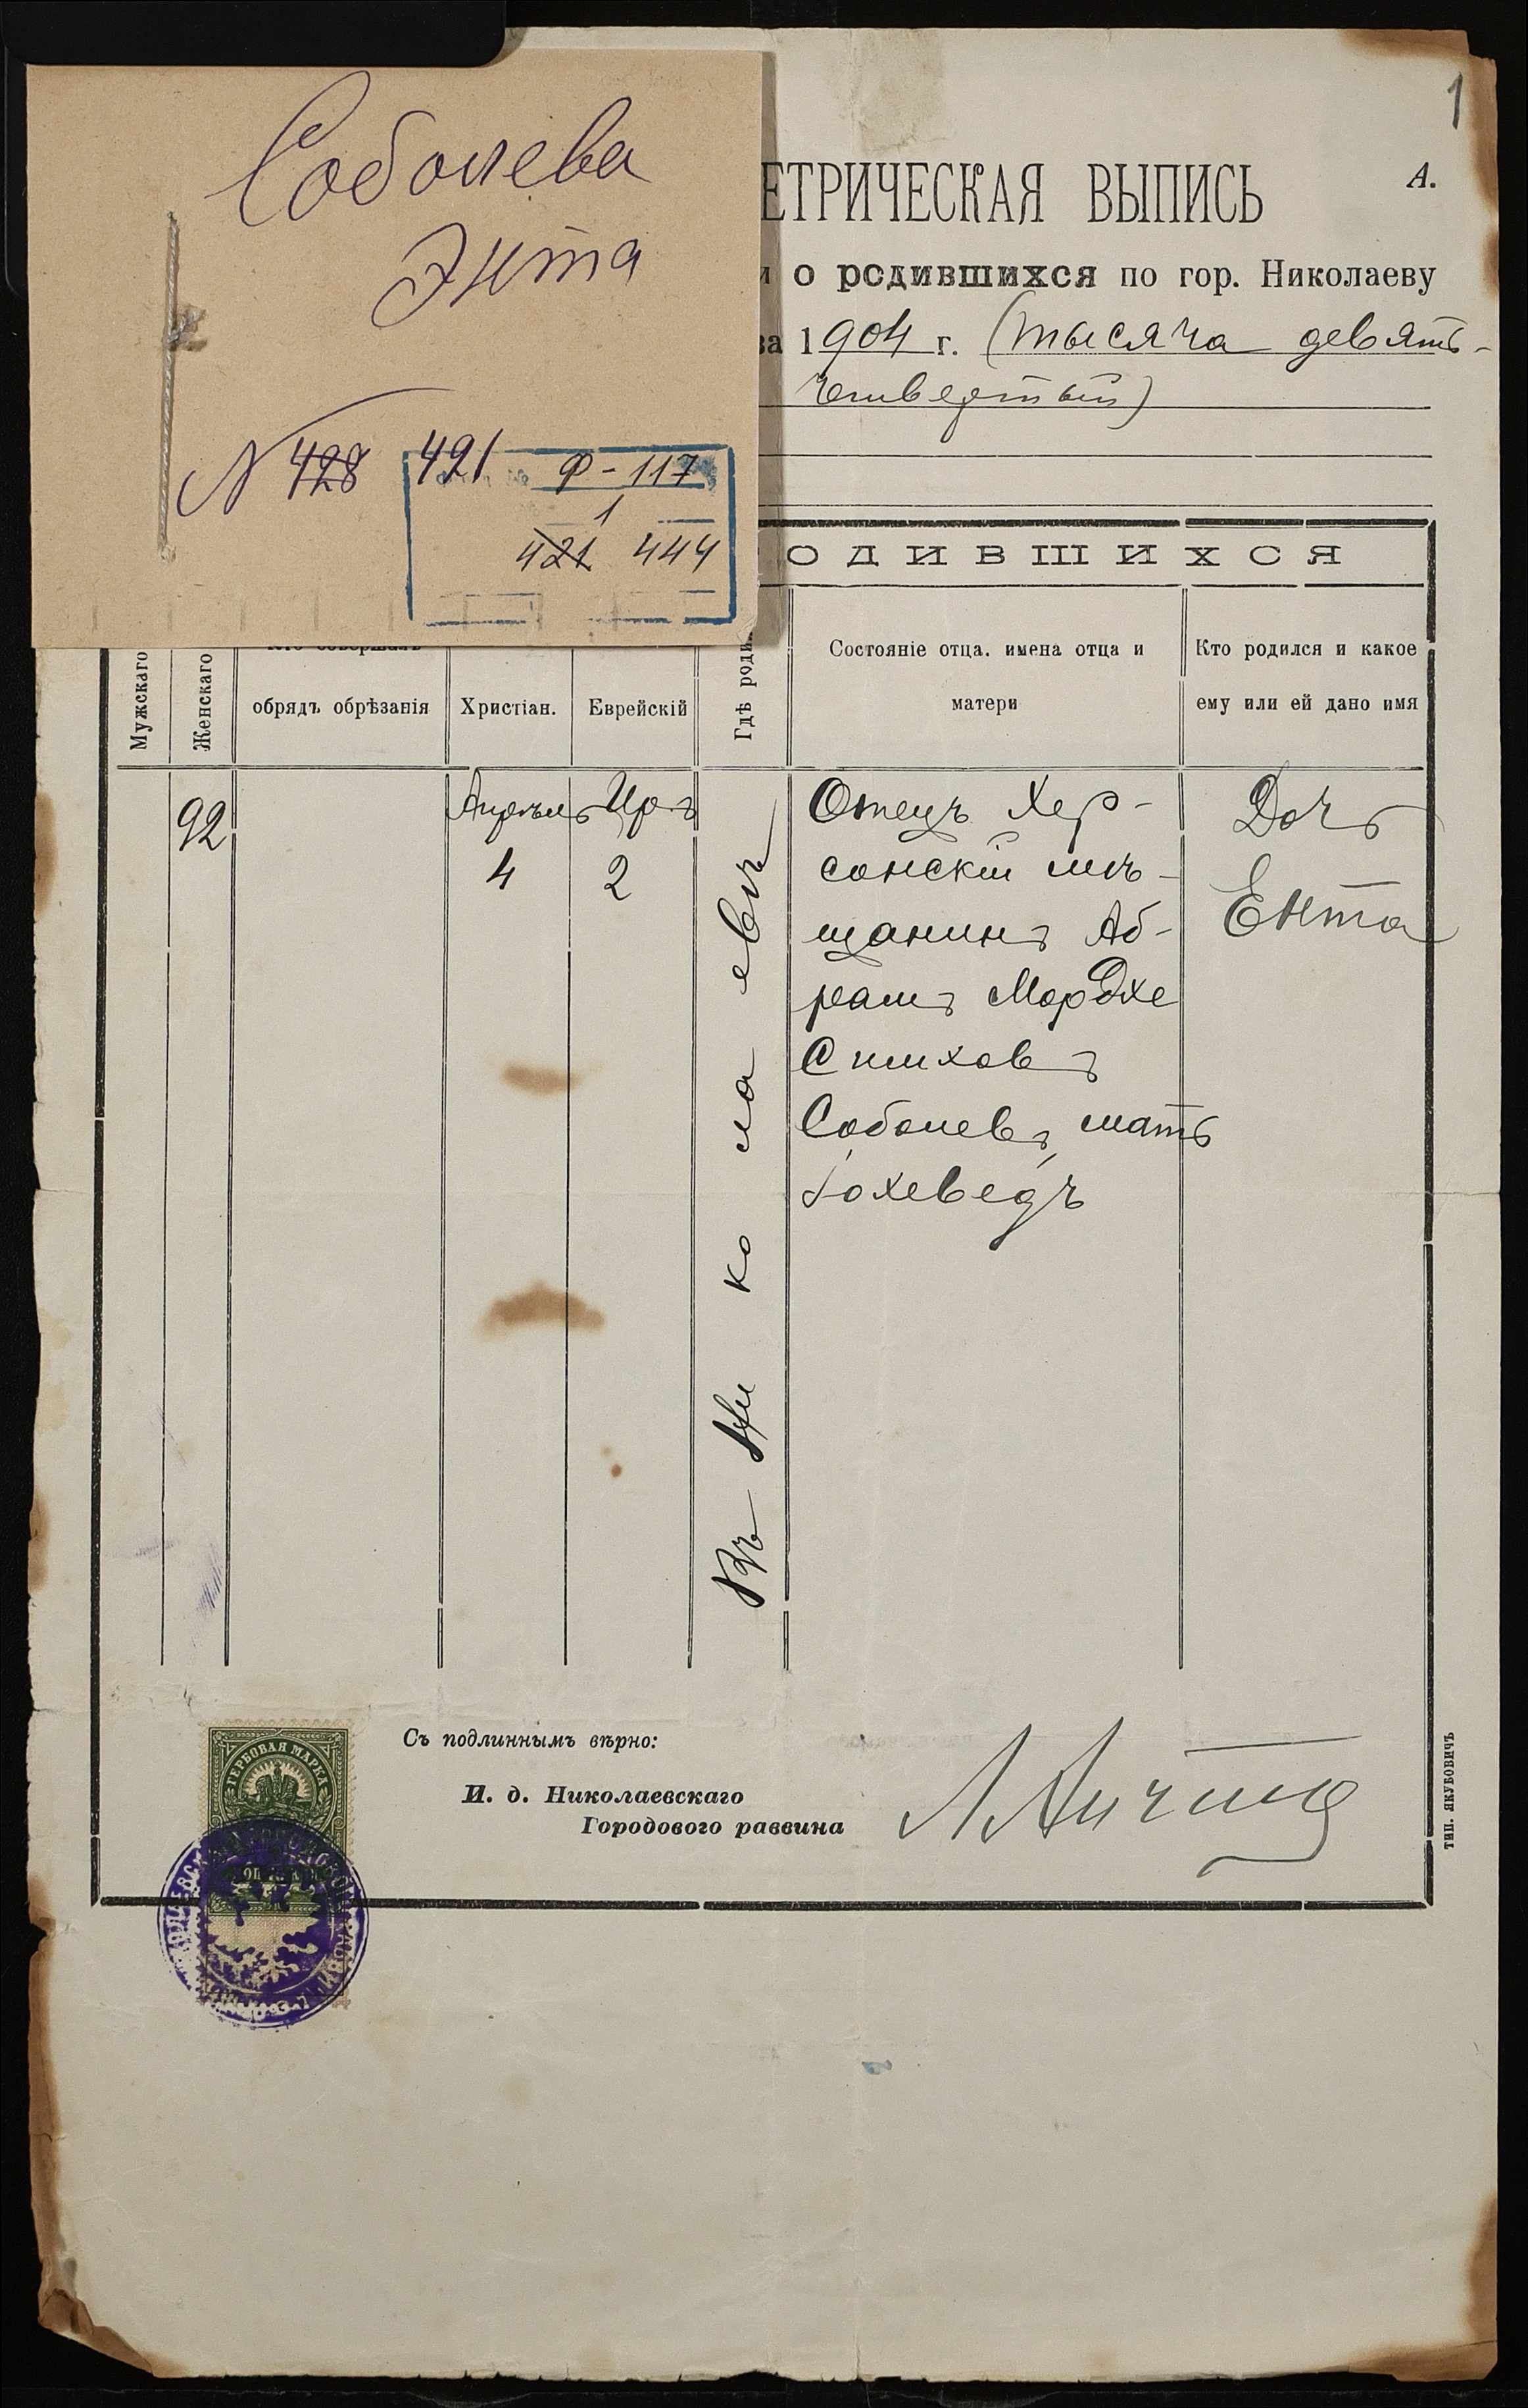 Соболева
Энта
N 428 421
Ф-117
1
421 444
1
А.
ЕТРИЧЕСКАЯ ВЫПИСЬ
и о родившихся по гор. Николаеву
за 1904 г. (тысяча девять-
четвертый)
ОДИВШИХСЯ
Мужскаго
Женскаго
Кто совершалъ
обрядъ обрѣзанія
Христіан.
Еврейскій
Гдѣ роди
Состояніе отца, имена отца и
матери
Кто родился и какое
ему или ей дано имя
92
Апрѣль
4
Иръ
2
Въ Николаевѣ
Отецъ Хер-
сонскій мѣ-
щанинъ Аб-
рамъ Мордхе
Симховъ
Соболевъ, мать
Іохеведъ
Дочь
Ента
ГЕРБОВАЯ МАРКА
Съ подлиннымъ вѣрно:
И. д. Николаевскаго
Городового раввина
ТИП. ЯКУБОВИЧЪ